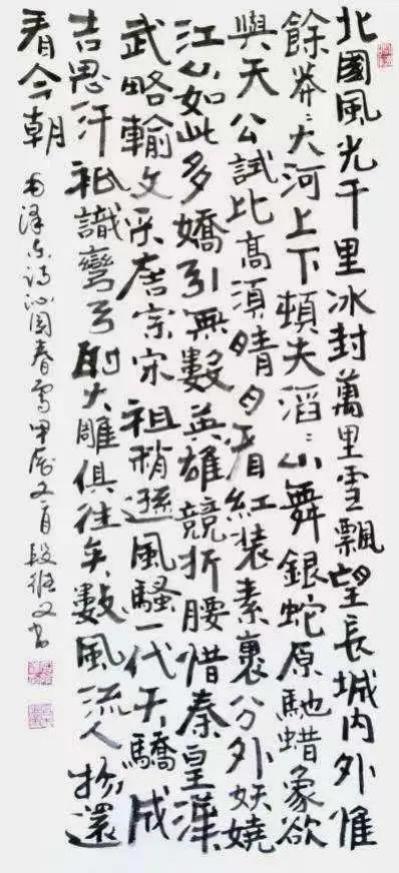 北國風光千里冰封萬里雪飄望長城內外惟
餘莽〻大河上下頓失滔〻山舞銀蛇原馳蜡象欲
與天公試比高須晴日看紅裝素裹分外妖嬈
江山如此多嬌引無數英雄競折腰惜秦皇漢
武略輸文采唐宗宋祖稍遜風騷一代天驕成
吉思汗祇識彎弓射大雕俱往矣數風流人物還
看今朝
毛泽东詩沁園春雪甲辰